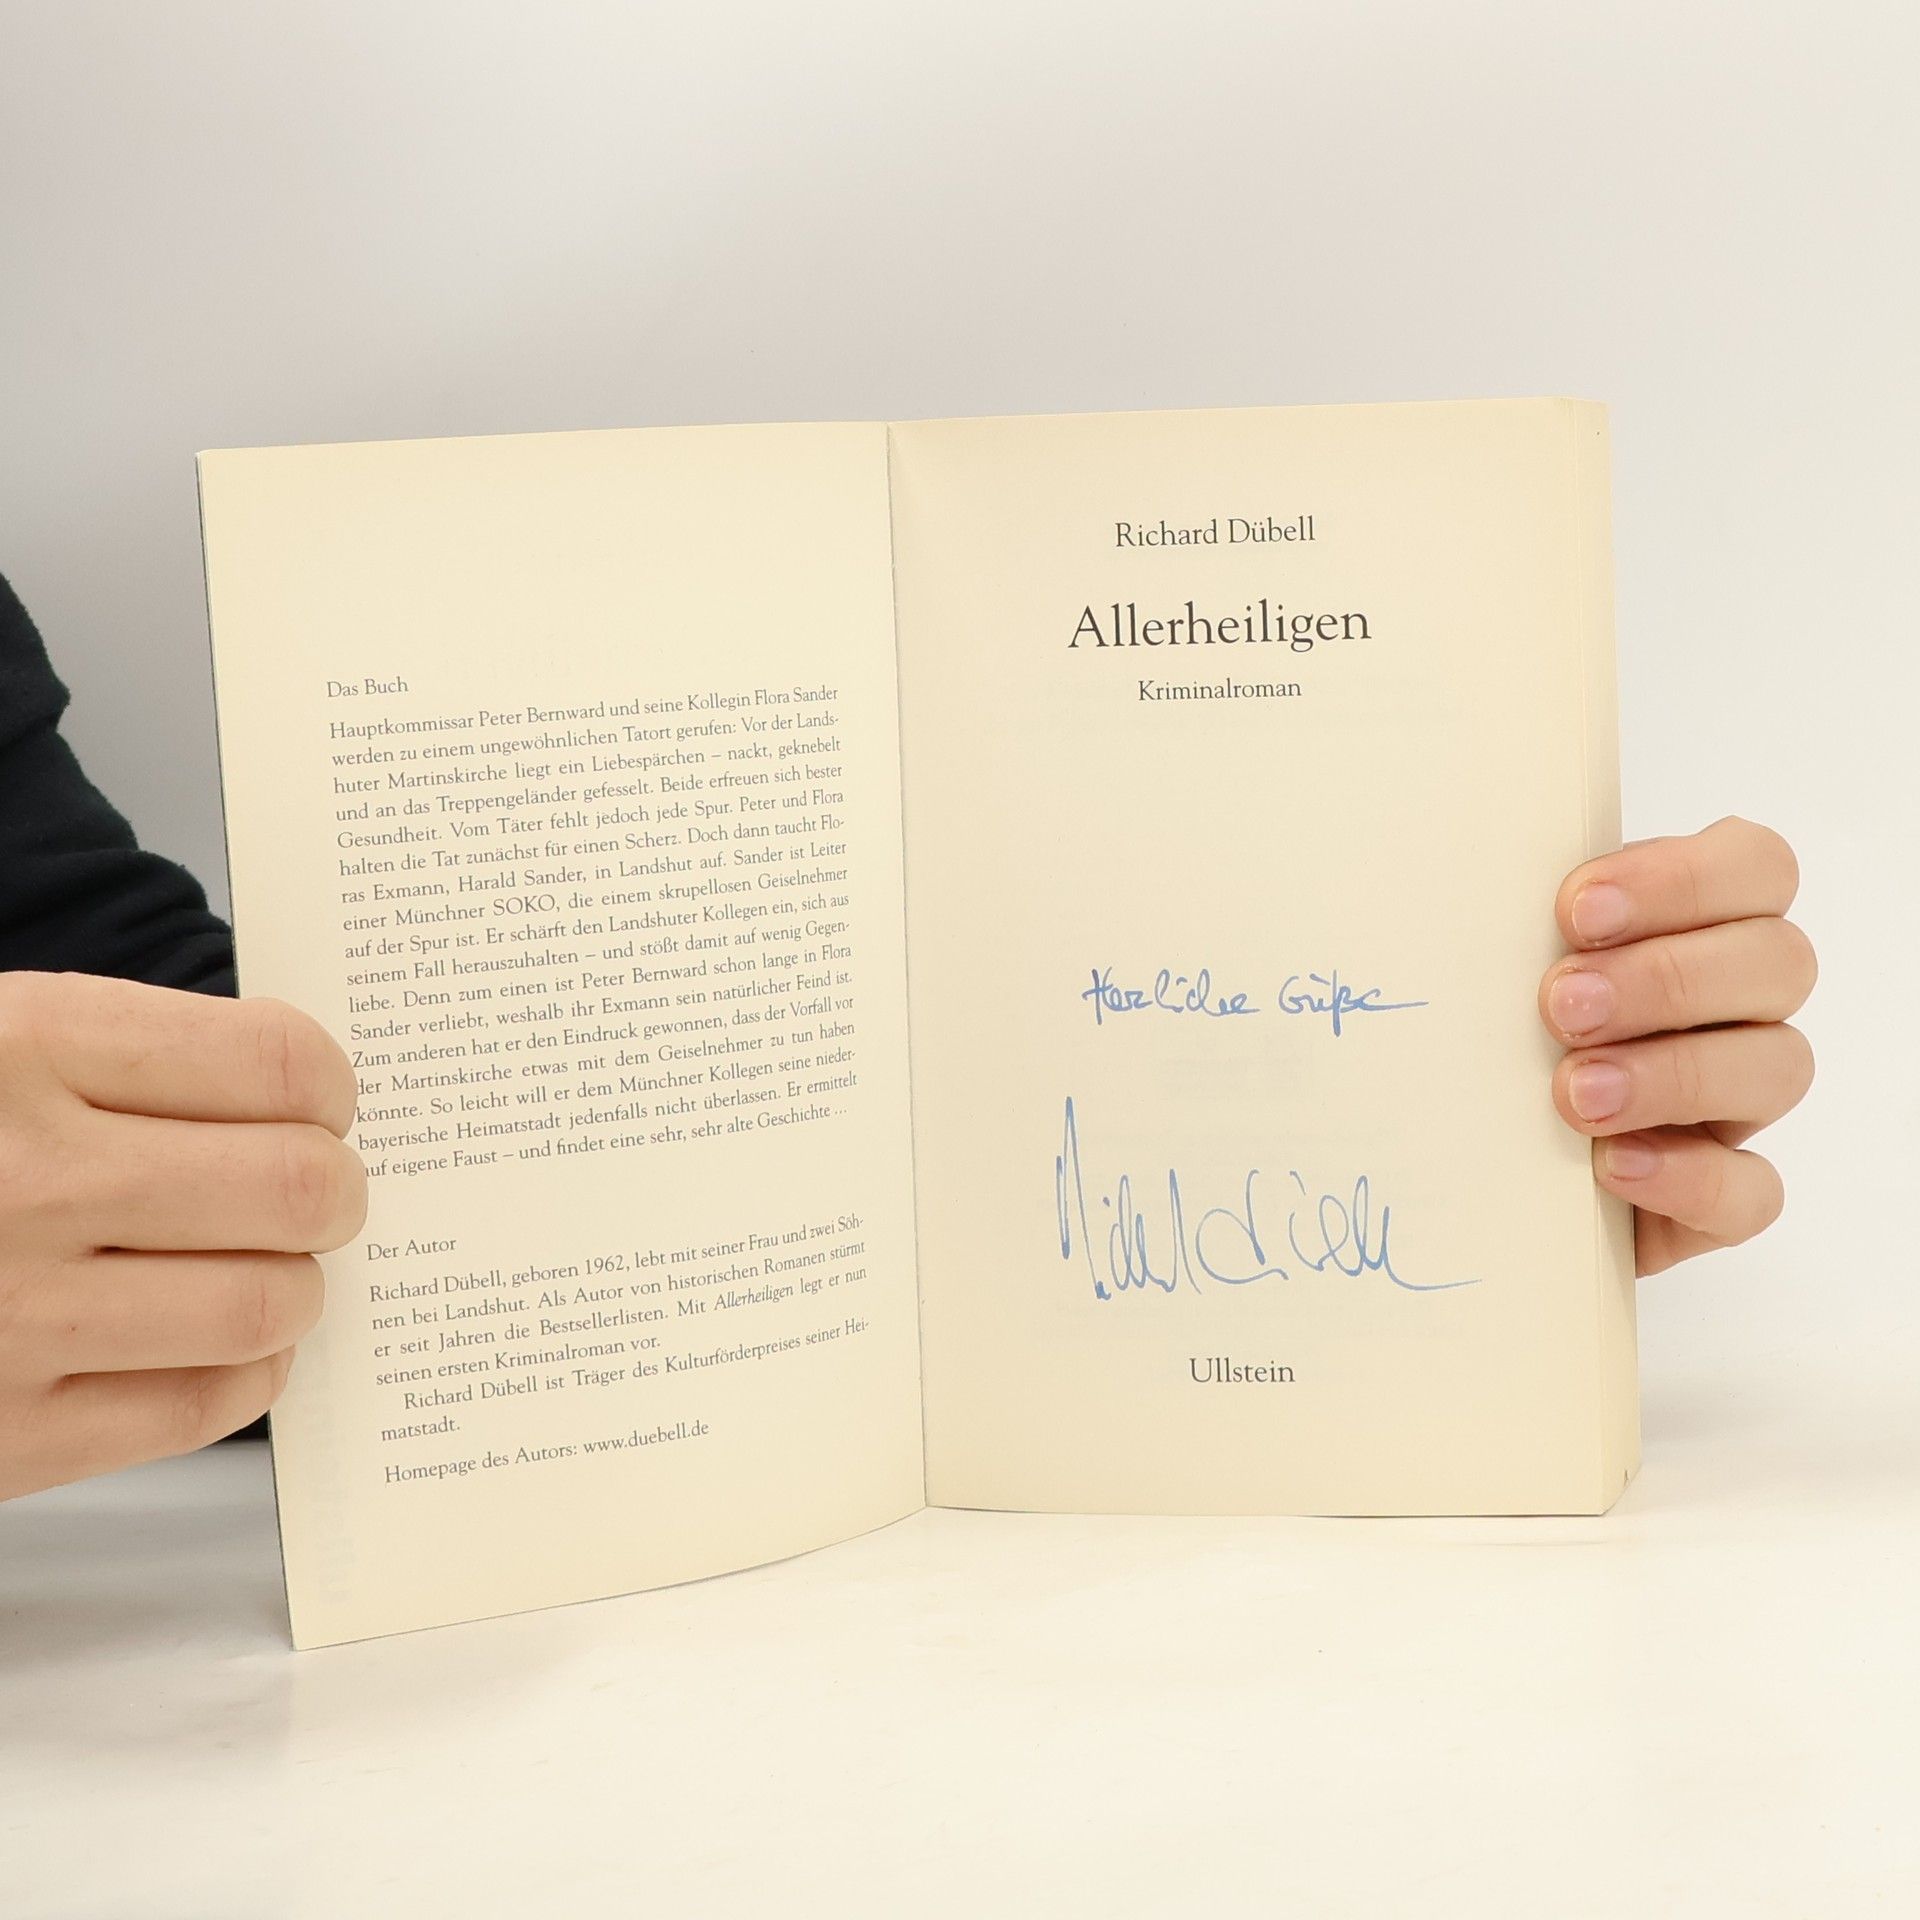 Das Buch
Hauptkommissar Peter Bernward und seine Kollegin Flora Sander
werden zu einem ungewöhnlichen Tatort gerufen: Vor der Lands-
huter Martinskirche liegt ein Liebespärchen – nackt, geknebelt
und an das Treppengeländer gefesselt. Beide erfreuen sich bester
Gesundheit. Vom Täter fehlt jedoch jede Spur. Peter und Flora
halten die Tat zunächst für einen Scherz. Doch dann taucht Flo-
ras Exmann, Harald Sander, in Landshut auf. Sander ist Leiter
einer Münchner SOKO, die einem skrupellosen Geiselnehmer
auf der Spur ist. Er schärft den Landshuter Kollegen ein, sich aus
seinem Fall herauszuhalten – und stößt damit auf wenig Gegen-
liebe. Denn zum einen ist Peter Bernward schon lange in Flora
Sander verliebt, weshalb ihr Exmann sein natürlicher Feind ist.
Zum anderen hat er den Eindruck gewonnen, dass der Vorfall vor
der Martinskirche etwas mit dem Geiselnehmer zu tun haben
könnte. So leicht will er dem Münchner Kollegen seine nieder-
bayerische Heimatstadt jedenfalls nicht überlassen. Er ermittelt
auf eigene Faust – und findet eine sehr, sehr alte Geschichte ...
Der Autor
Richard Dübell, geboren 1962, lebt mit seiner Frau und zwei Söh-
nen bei Landshut. Als Autor von historischen Romanen stürmt
er seit Jahren die Bestsellerlisten. Mit Allerheiligen legt er nun
seinen ersten Kriminalroman vor.
Richard Dübell ist Träger des Kulturförderpreises seiner Hei-
matstadt.
Homepage des Autors: www.duebell.de
Richard Dübell
Allerheiligen
Kriminalroman
Herzliche Grüße
Richard Dübell
Ullstein